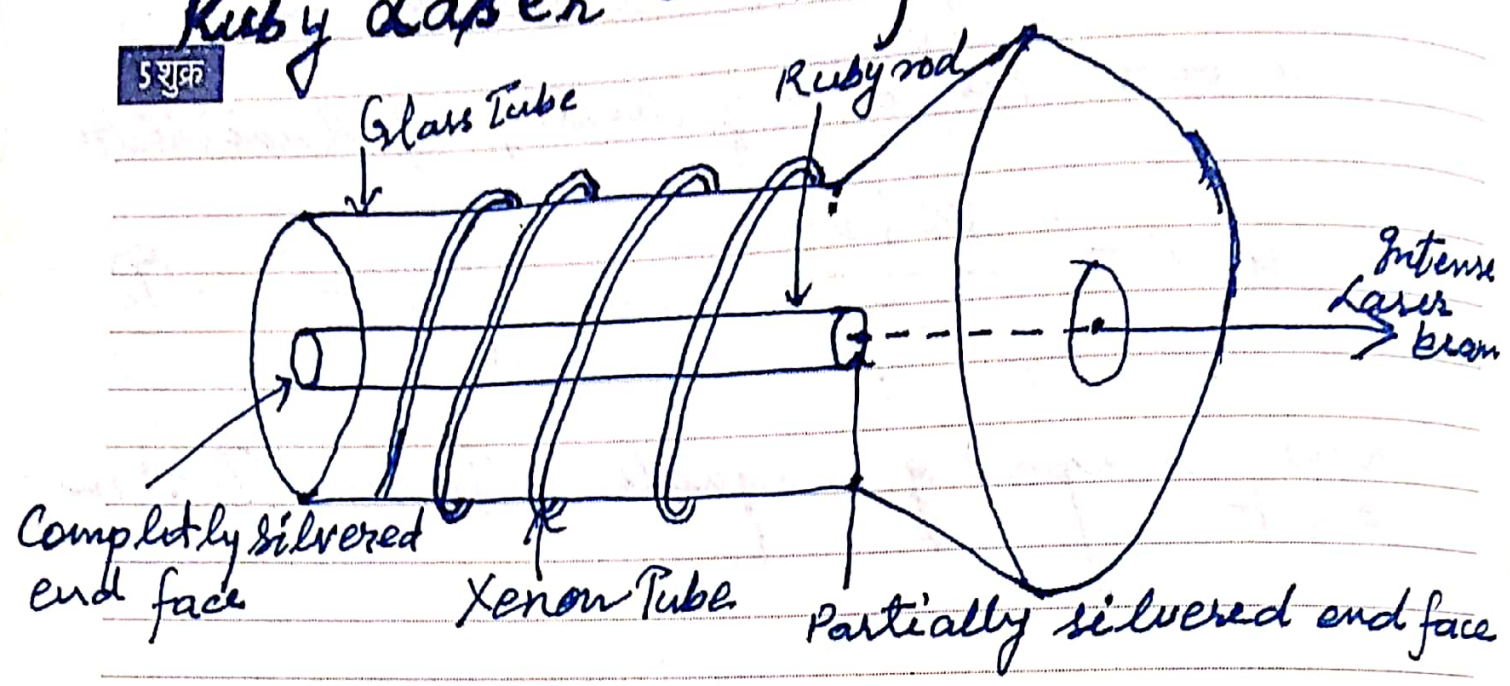 Ruby Laser
5 शुक्र
Glass Tube
Ruby rod
Intense
Laser
beam
Completly silvered
end face
Xenon Tube
Partially silvered end face